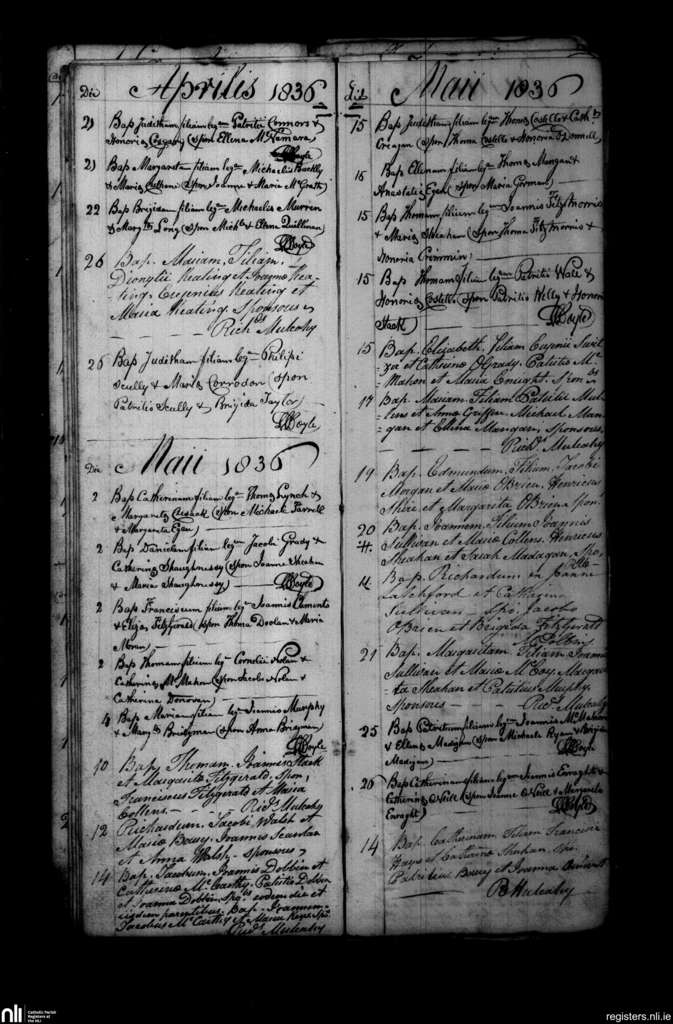 Die Aprilis 1836
21 Bap Juditham filiam legm Patritii Connors &
Honoria Gregory (Spon Ellena McNamara)
Boyle
21 Bap Margaretam filiam legm Michaelis Buckley
& Maria (Spon Joanne & Maria McGrath)
22 Bap Brijidam filiam legm Michaelis Murren
& Mary Long (Spon Michl & Ellena Quillinan)
Boyle
26 Bap. Mariam, Filiam
Dionytii Keating et Joannæ Kea-
ting. Eugenius Keating et
Maria Keating Sponsores
Richd Mulcahy
26 Bap Juditham filiam legm Philipi
Scully & Maria Corrodon (Spon
Patritio Scully & Brijida Taylor)
Boyle
Die Maii 1836
2 Bap Catherinam filiam legm Thoma Lynch &
Margareta Cusack (Spon Michaele Farrell
& Margareta Egan)
2 Bap Danielem filium legm Jacobi Grady &
Catherina Shaughnessy (Spon Joanne Sheahan
& Maria Shaughnessy)
Boyle
2 Bap Franciscum filium legm Joannis Clements
& Eliza Fitzgerald (Spon Thoma Doolan & Maria
Moran)
2 Bap Thomam filium legm Cornelii Nolan &
Catherina McMahon (Spon Jacobo Nolan &
Catherine Donovan)
4 Bap Mariam filiam legm Joannis Murphy
& Mary Bridgman (Spon Anna Bridgman)
Boyle
10 Bap. Thomam. Joannes Stack
et Margarita Fitzgerald. Spon,
Franciscus Fitzgerald et Maria
Collens. Richd Mulcahy
12 Richardum. Jacobi Walsh et
Maria Bouy. Joannes Scanlan
et Anna Walsh. Sponsores
14 Bap. Jacobum. Joannis Dobbin et
Catherinæ McCarthy. Patritius Dobbin
et Joanna Dobbin, Spors eodem die et
eisdem parentibus. Bap. Joannem.
Jacobus McCarthy et Maria Spo.
Richd Mulcahy
Die Maii 1836
15 Bap Juditham filiam legm Thoma Costello & Cath
Creagan (Spon Thoma Costello & Honoria Donnell)
15 Bap Ellenam filiam legm Thoma Mangan &
Anastatia Egan (Spon Maria Gorman)
15 Bap Thomam filium legm Joannis Fitzmorris
& Maria Sheahan (Spon Thoma Fitzmorris &
Honoria Crimmin)
15 Bap Thomam filium legm Patritii Wall &
Honoria Costello (Spon Patritio Kelly & Honoria
Stack)
Boyle
15 Bap. Elizabeth. Filiam
et Catherina OGrady. Patritio Mc
Mahon et Maria Enright. Spon
17 Bap. Mariam Filiam Patritii Mul-
lins et Anna Griffin. Michael Man-
gan et Ellena Mangan, Sponsores,
Richd Mulcahy
19 Bap. Edmundum. Filium. Jacobi
Morgan et Maria OBrien. Henricus
Shire et Margarita OBrien Spon.
20 Bap. Joannem. Filium Joannis
Sullivan et Maria Collens. Henricus
Sheahan et Sarah Madagan. Spo,
Bap. Richardum
Latchford et Catherina
Sullivan - Spo. Jacobo
OBrien et Brigida Fitzgerald
21 Bap. Margaritam. Filiam Joannis
Sullivan et Maria McCoy. Margari-
ta Sheahan et Patritius Murphy.
Sponsores Richd Mulcahy
25 Bap Patritium filium legm Joannis McMahon
& Ellena Madigan (Spon Michaele Ryan & Brijida
Madigan)
Boyle
26 Bap Catherinam filiam legm Joannis Enraght &
Catherina ONeill (Spon Joanne ONeill & Margareta
Enraght)
Boyle
14 Bap. Catherinam. Filiam Francisci
Hays et Catherina Sheehan. Spo.
Patritius Bouy et Joanna
R Mulcahy
nli
Catholic Parish
Registers at
the NLI
registers.nli.ie